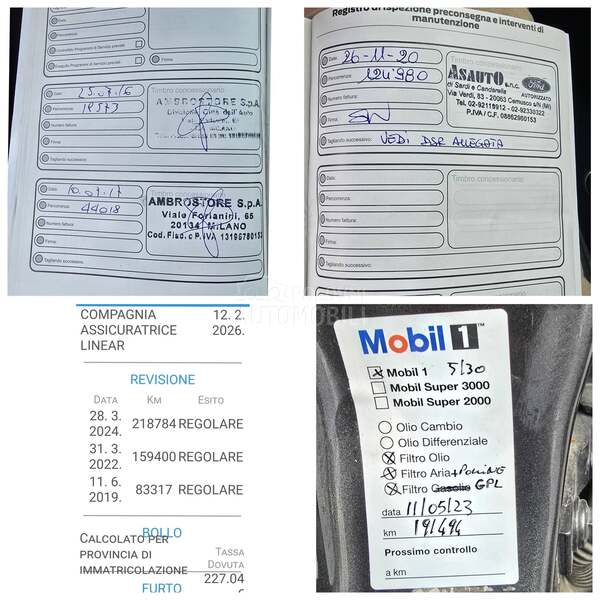 Controllo Programmi di Servizio previsti
Eseguito Programmi di Servizio previsti
Data: 25.07.16
Percorrenza: 19573
Numero fattura:
Firma:
Tagliando successivo:
Timbro concessionario:
AMBROSTORE S.p.A.
Data: 10.07.17
Percorrenza: 44018
Numero fattura:
Firma:
Tagliando successivo:
Timbro concessionario:
AMBROSTORE S.p.A.
Viale Forlanini, 65
20134 MILANO
Cod. Fisc. e P. IVA 13196780153
Registro di ispezione preconsegna e interventi di
manutenzione
Data: 26-11-20
Percorrenza: 124'980
Numero fattura:
Firma:
Tagliando successivo: VEDI DSR ALLEGATA
Timbro concessionario:
ASAUTO s.n.c.
di Sardi e Candarella
Via Verdi, 83 - 20063 Cernusco s/N (MI)
Tel. 02-92119912 - 02-92333322
P.IVA / C.F. 08862960153
Ford
AUTORIZZATO
Data:
Percorrenza:
Numero fattura:
Firma:
Tagliando successivo:
Timbro concessionario:
COMPAGNIA
ASSICURATRICE
LINEAR
12. 2.
2026.
REVISIONE
DATA KM ESITO
28. 3.
2024. 218784 REGOLARE
31. 3.
2022. 159400 REGOLARE
11. 6.
2019. 83317 REGOLARE
BOLLO
CALCOLATO PER
PROVINCIA DI
IMMATRICOLAZIONE
TASSA
DOVUTA
227.04
€
FURTO
Mobil 1™
Mobil 1 5/30
Mobil Super 3000
Mobil Super 2000
Olio Cambio
Olio Differenziale
Filtro Olio
Filtro Aria + POLLINE
Filtro Gasolio GPL
data 11/05/23
km 191494
Prossimo controllo
a km
AUTOMOBILI